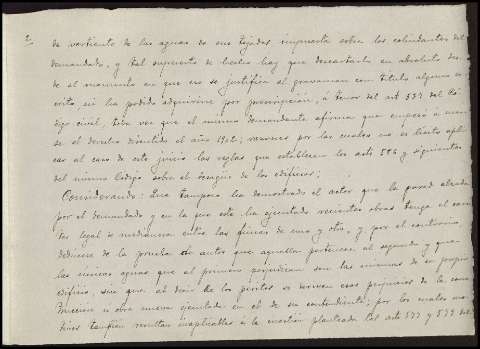 2
de vertiente de las aguas de sus tejados impuesta sobre los colindantes del
demandado, y tal supuesto de hecho hay que descartarlo en absoluto des-
de el momento en que no se justifica el gravamen con título alguno es-
crito, ni ha podido adquirirse por prescripción, á tenor del art 537 del Có-
digo civil, toda vez que el mismo demandante afirma que empezó á usar-
se el derecho discutido el año 1902; razones por las cuales no es lícito apli-
car al caso de este juicio las reglas que establecen los arts 586 y siguientes
del mismo Código sobre el desagüe de los edificios;
Considerando: Que tampoco ha demostrado el actor que la pared alzada
por el demandado y en la que este ha ejecutado recientes obras tenga el carac-
ter legal de medianera entre las fincas de uno y otro, y, por el contrario,
dedúcese de la prueba de autos que aquella pertenece al segundo y que
las únicas aguas que al primero perjudican son las mismas de su propio
edificio, sin que al daño de los goteras se deriven esas propias de la cons-
trucción u obra nueva ejecutada en el de su contendiente; por los cuales mo-
tivos también resultan inaplicables á la cuestión planteada los arts 577 y 579 del